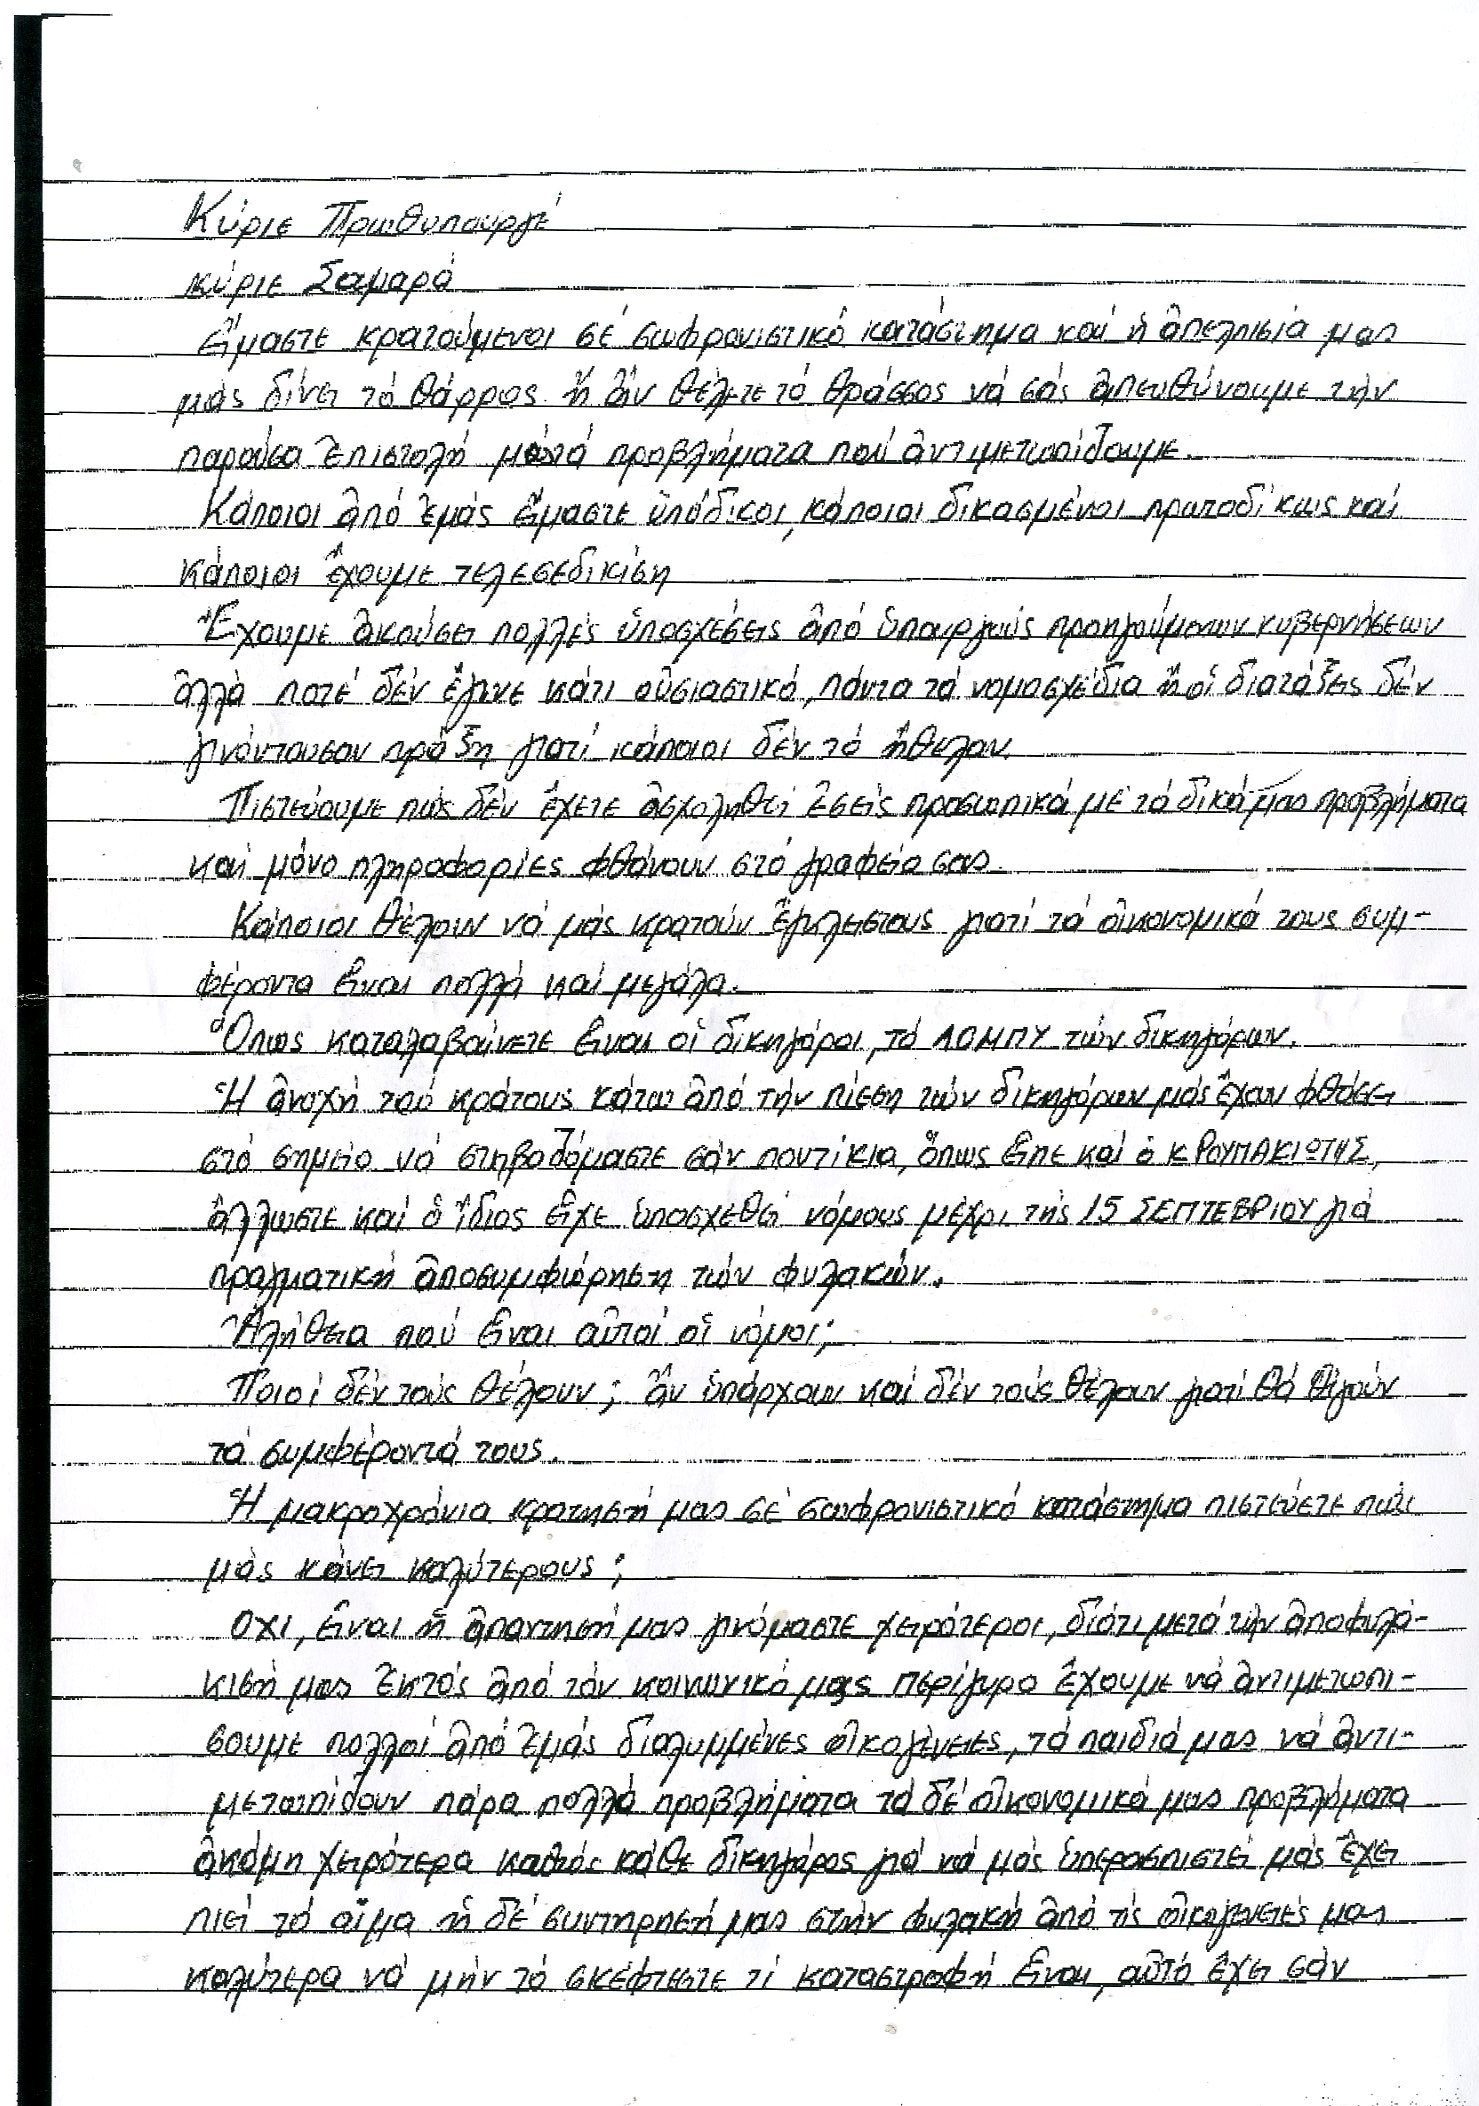 Κύριε Πρωθυπουργέ
κύριε Σαμαρά
Εἴμαστε κρατούμενοι σέ σωφρονιστικό κατάστημα καί ἡ ἀπελπισία μας
μάς δίνει τό θάρρος ἤ ἄν θέλετε τό θράσσος νά σάς ἀπευθύνουμε τήν
παρούσα ἐπιστολή μέ τά προβλήματα πού ἀντιμετωπίζουμε.
Κάποιοι ἀπό ἐμάς εἴμαστε ὑπόδικοι, κάποιοι δικασμένοι πρωτοδίκως καί
κάποιοι ἔχουμε τελεσεδικίση
Ἔχουμε ἀκούσει πολλές ὑποσχέσεις ἀπό ὑπουργούς προηγούμενων κυβερνήσεων
ἀλλά ποτέ δέν ἔγινε κάτι οὐσιαστικό, πάντα τά νομοσχέδια ἤ οἱ διατάξεις δέν
γινόντουσαν πράξη γιατί κάποιοι δέν τό ἤθελαν.
Πιστεύουμε πώς δέν ἔχετε ἀσχοληθεί ἐσείς προσωπικά μέ τά δικά μας προβλήματα
καί μόνο πληροφορίες φθάνουν στό γραφείο σας.
Κάποιοι θέλουν νά μάς κρατούν ἔγκλειστους γιατί τά οἰκονομικά τους συμ-
φέροντα εἶναι πολλά καί μεγάλα.
Ὅπως καταλαβαίνετε εἶναι οἱ δικηγόροι, τό ΛΟΜΠΥ τών δικηγόρων.
Ἡ ἀνοχή τού κράτους κάτω ἀπό τήν πίεση τών δικηγόρων μάς ἔχουν φθάσει
στό σημείο νά στηβαζόμαστε σάν ποντίκια, ὅπως εἶπε καί ὁ κ ΡΟΥΠΑΚΙΩΤΗΣ,
ἄλλωστε καί ὁ ἴδιος εἶχε ὑποσχεθεί νόμους μέχρι τής 15 ΣΕΠΤΕΒΡΙΟΥ γιά
πραγματική ἀποσυμφιόρηση τών φυλακών.
Ἀλήθεια πού εἶναι αὐτοί οἱ νόμοι;
Ποιοί δέν τούς θέλουν; ἄν ὑπάρχουν καί δέν τούς θέλουν γιατί θά θιγούν
τά συμφέροντά τους.
Ἡ μακροχρόνια κρατησή μας σέ σωφρονιστικό κατάστημα πιστεύετε πώς
μάς κάνει καλύτερους;
ΟΧΙ, εἶναι ἡ ἀπαντησή μας γινόμαστε χειρότεροι, διότι μετά τήν ἀποφυλά-
κισή μας ἐκτός ἀπό τόν κοινωνικό μας περίγυρο ἔχουμε νά ἀντιμετωπί-
σουμε πολλοί ἀπό ἐμάς διαλυμμένες οἰκογένειες, τά παιδιά μας νά ἀντι-
μετωπίζουν πάρα πολλά προβλήματα τά δέ οἰκονομικά μας προβλήματα
ἀκόμη χειρότερα καθώς κάθε δικηγόρος γιά νά μάς ὑπερασπιστεί μάς ἔχει
πιεί τό αἷμα ἡ δέ συντηρησή μας στήν φυλακή ἀπό τίς οἰκογένειές μας
καλύτερα νά μήν τό σκέφτεστε τί καταστροφή εἶναι, αὐτό ἔχει σάν